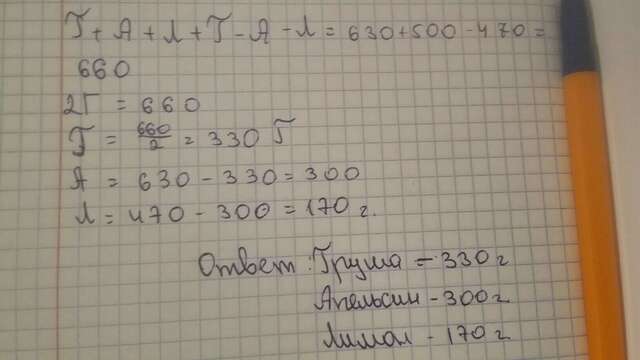 Г + А + Л + Г - А - Л = 630 + 500 - 470 =
660
2Г = 660
Г = 660/2 = 330 г
А = 630 - 330 = 300
Л = 470 - 300 = 170 г.
Ответ: Груша - 330 г
Апельсин - 300 г
Лимал - 170 г